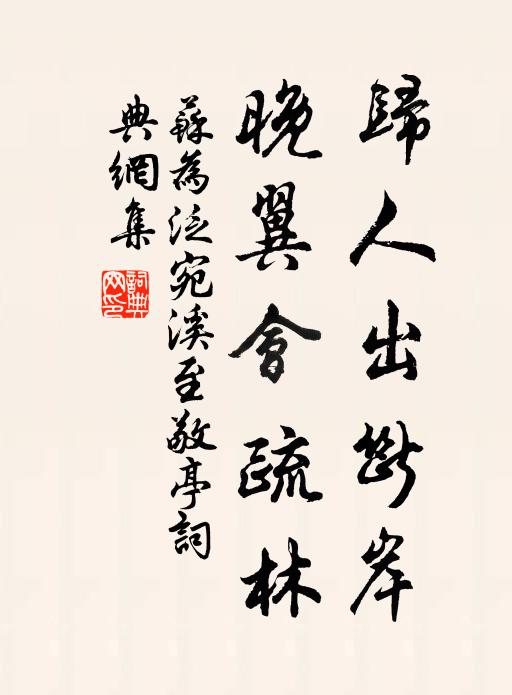 歸人出斷岸
晚翼會疏林
蘇為泛宛溪至敬亭詞
典網集
詞典網印